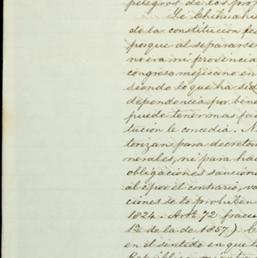 peligros de los prop
Si Chihuahu
de la constitucion fed
porque al separarse
no era ni provincia
congreso mejicano en
siendo lo que ha sid
dependencia, por bene
puede tener mas fa
tucion le concedia. N
torizan para decretar
nerales, ni para hac
obligaciones sancion
al ejor el contrario, va
ciones de lo prohiben
1824. Art.º 72 fracc
12 de la de 1857) C
en el sentido en que l